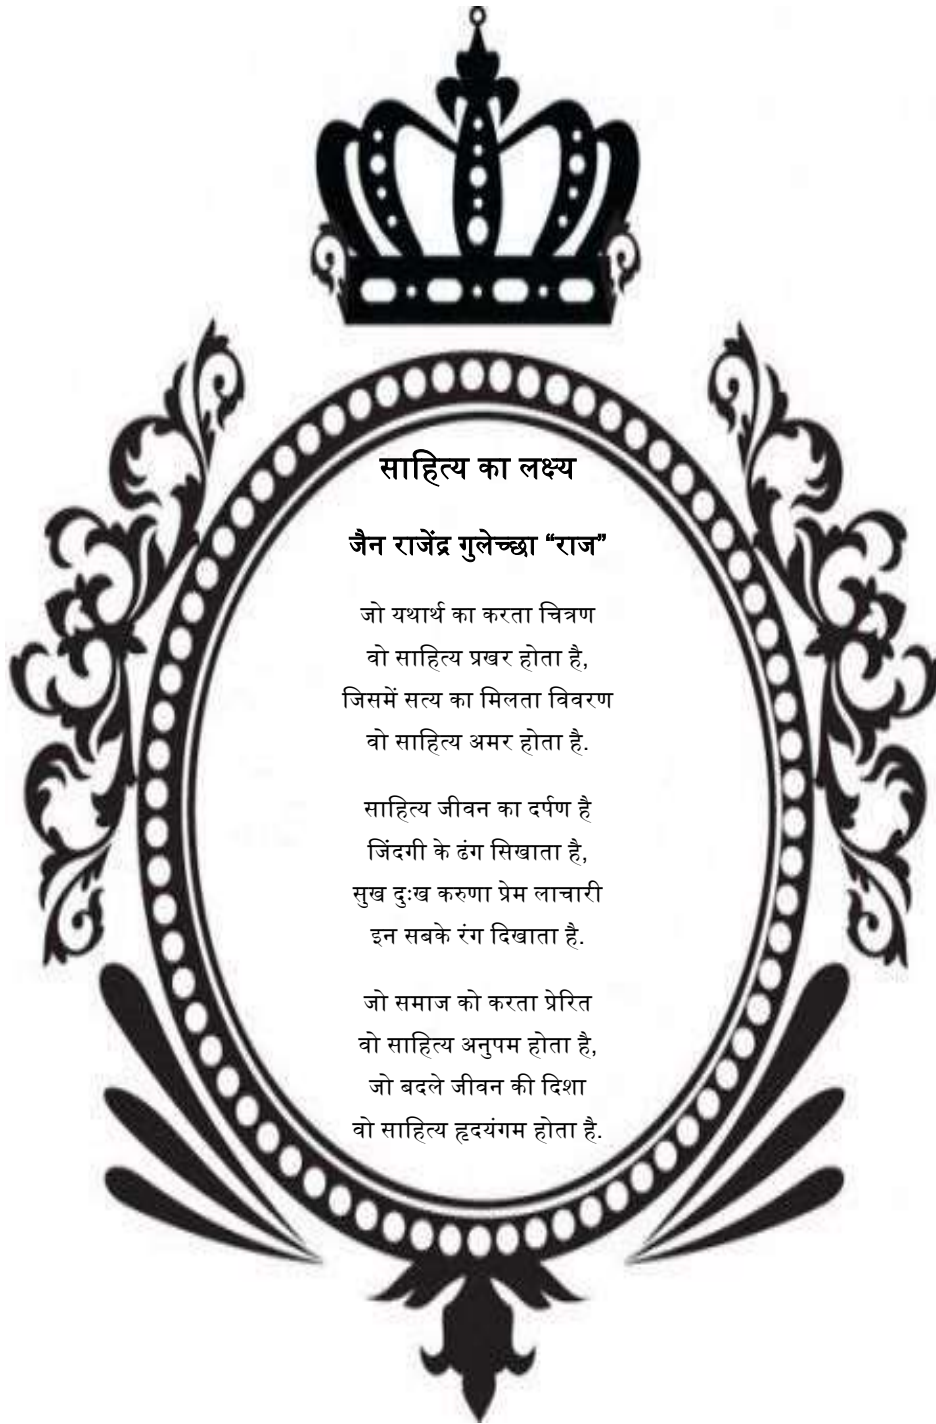 साहित्य का लक्ष्य
जैन राजेंद्र गुलेच्छा “राज”
जो यथार्थ का करता चित्रण
वो साहित्य प्रखर होता है,
जिसमें सत्य का मिलता विवरण
वो साहित्य अमर होता है.
साहित्य जीवन का दर्पण है
जिंदगी के ढंग सिखाता है,
सुख दुःख करुणा प्रेम लाचारी
इन सबके रंग दिखाता है.
जो समाज को करता प्रेरित
वो साहित्य अनुपम होता है,
जो बदले जीवन की दिशा
वो साहित्य हृदयंगम होता है.